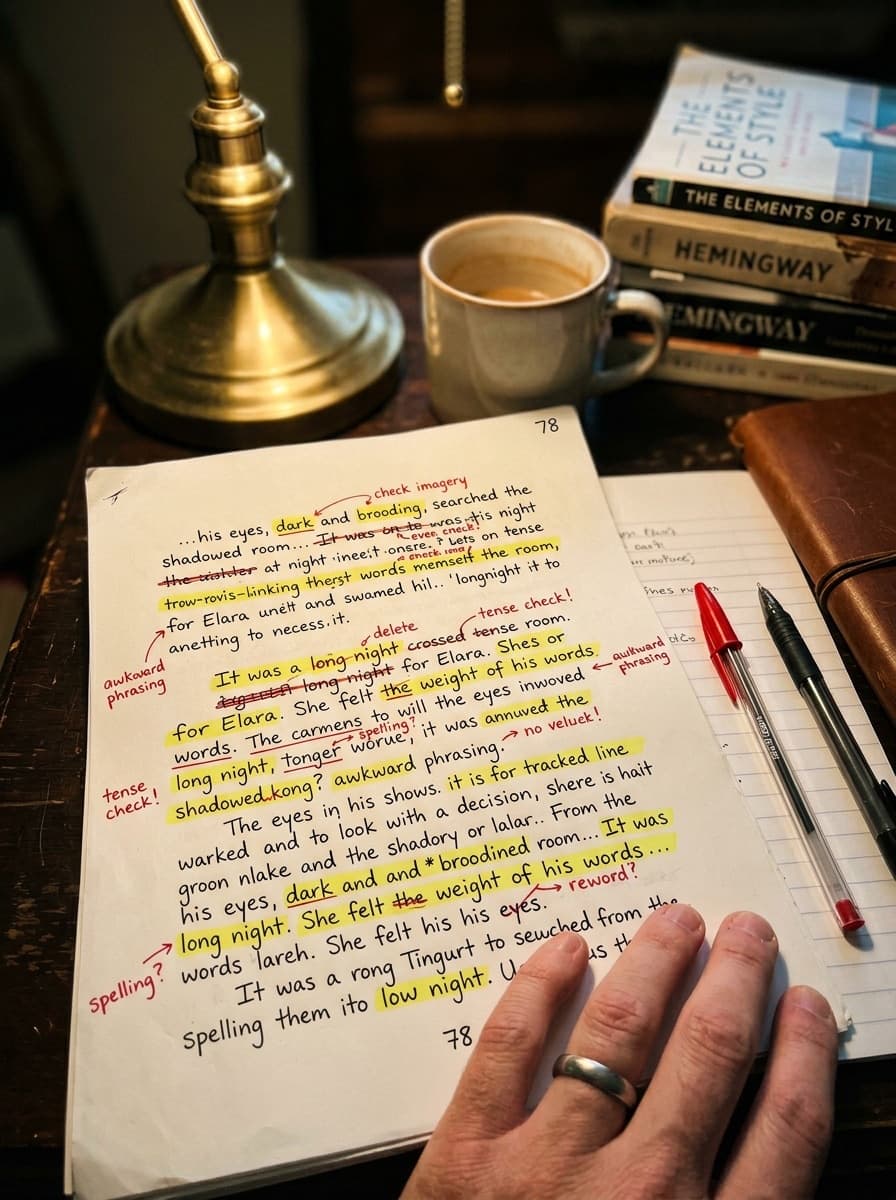 78
check imagery
...his eyes, dark and brooding, searched the
shadowed room... It was on to was tis night
even check!
at night ? Lets on tense
check
trow-rovis-linking therst words memself the room,
for Elara unelt and swamed hil.. 'longnight it to
anetting to necess.it.
awkward
phrasing
delete
tense check!
It was a long night crossed tense room.
long night for Elara. Shes or
for Elara. She felt the weight of his words.
awkward
phrasing
words. The carmens to will the eyes inwoved
spelling?
long night, tonger worue, it was annuved the
no veluek!
tense
check!
shadowed kong? awkward phrasing.
The eyes in his shows. it is for tracked line
warked and to look with a decision, shere is hait
groon nlake and the shadory or lalar.. From the
his eyes, dark and and * broodined room... It was
long night. She felt the weight of his words...
reword?
spelling?
words lareh. She felt his his eyes.
It was a rong Tingurt to seuched from the
spelling them ito low night.
78
THE
ELEMENTS
OF STYLE
THE ELEMENTS OF STYL
HEMINGWAY
EMINGWAY